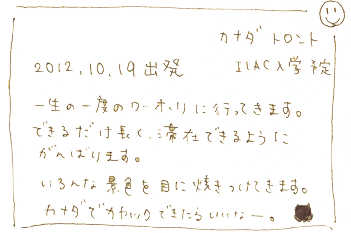 カナダ トロント
2012.10.19 出発 ILAC入学予定
一生の一度のワーホリに行ってきます。
できるだけ長く、滞在できるように
がんばります。
いろんな景色を目に焼きつけてきます。
カナダで できたらいいなー。